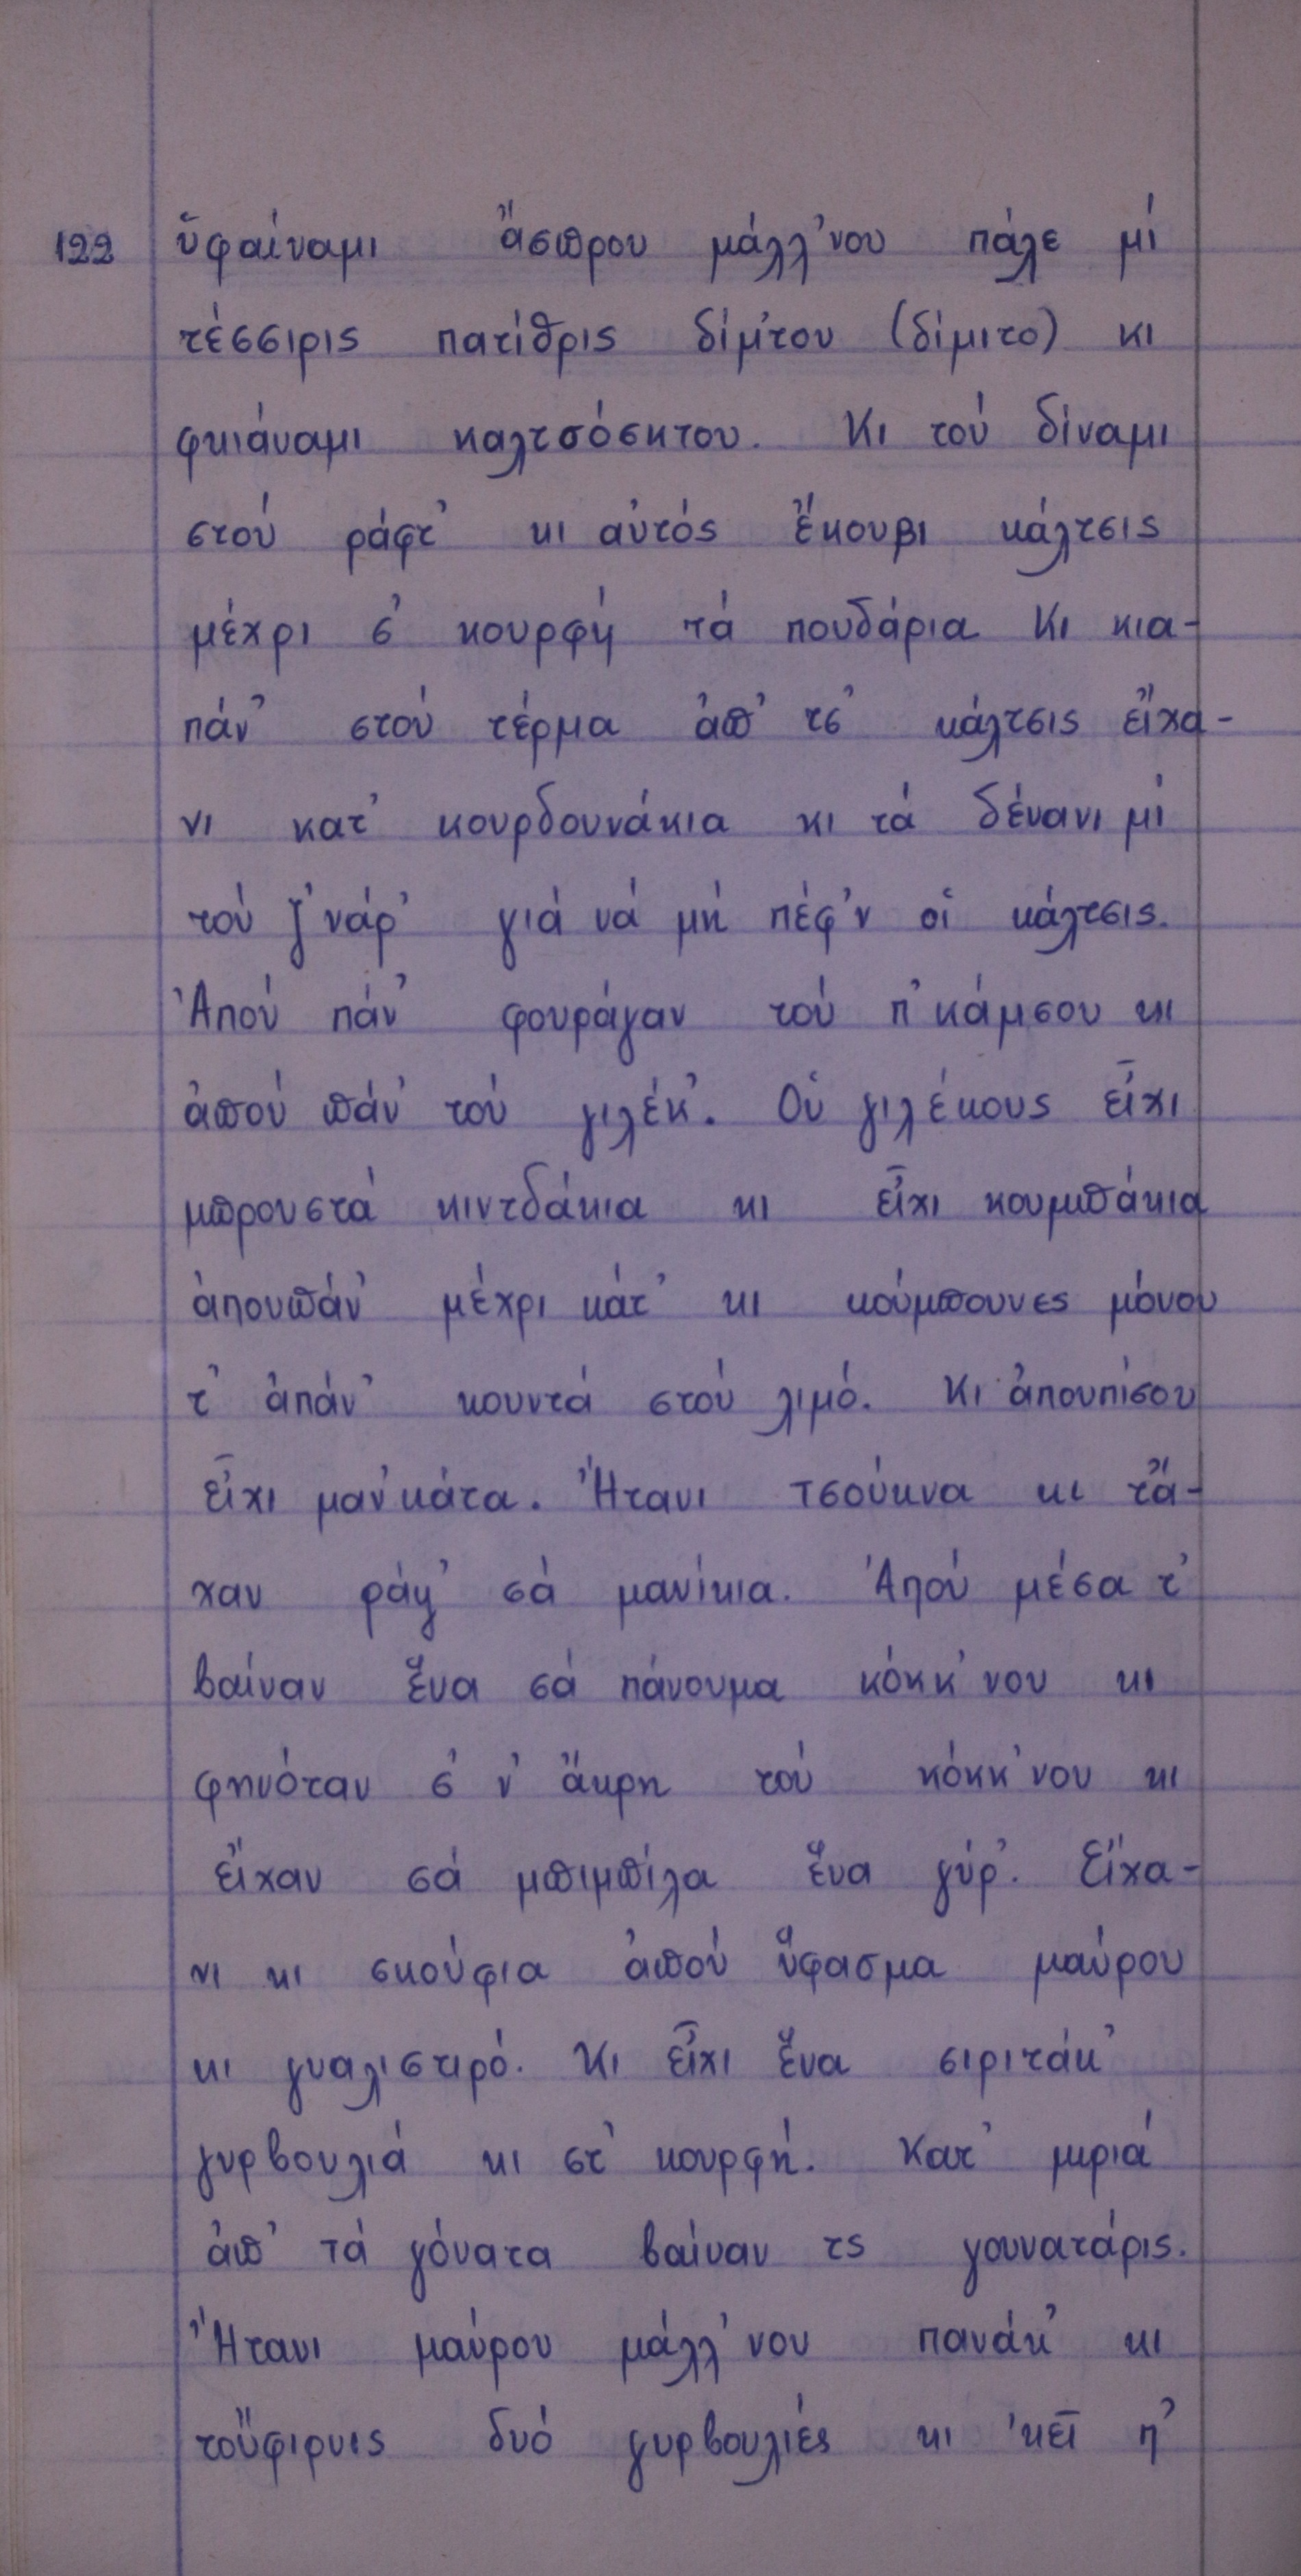 122 ὕφαίναμι ἄσπρου μάλλ'νου πάλε μί
τέσσιρις πατίθρις δίμ'του (δίμιτο) κι
φκιάναμι καλτσόσκτου. Κι τού δίναμι
στού ράφτ' κι αὐτός ἔκουβι κάλτσις
μέχρι σ' κουρφή τά πουδάρια Κι κια-
πάν' στού τέρμα ἀπ' τσ' κάλτσις εἴχα-
νι κατ' κουρδουνάκια κι τά δένανι μί
τού ζ'νάρ' γιά νά μή πέφ'ν οἱ κάλτσις.
Ἀπού πάν' φουράγαν τού π'κάμσου κι
ἀπού πάν' τού γιλέκ'. Οὑ γιλέκους εἶχι
μπρουστά κιντδάκια κι εἶχι κουμπάκια
ἀπουπάν' μέχρι κάτ' κι κούμπουνες μόνου
τ' ἀπάν' κουντά στού λιμό. Κι ἀπουπίσου
εἶχι μαν'κάτα. Ἤτανι τσούκνα κι τἄ-
χαν ράψ' σά μανίκια. Ἀπού μέσα τ'
βαίναν ἕνα σά πάνουμα κόκκ'νου κι
φηνόταν σ' ν' ἄκρη τού κόκκ'νου κι
εἴχαν σά μπιμπίλα ἕνα γύρ'. Εἴχα-
νι κι σκούφια ἀπού ὕφασμα μαύρου
κι γυαλιστιρό. Κι εἶχι ἕνα σιριτάκ'
γυρβουλιά κι στ' κουρφή. Κατ' μιριά
ἀπ' τά γόνατα βαίναν τς γουνατάρις.
Ἤτανι μαύρου μάλλ'νου πανάκ' κι
τοὔφιρνις δυό γυρβουλιές κι 'κεῖ π'